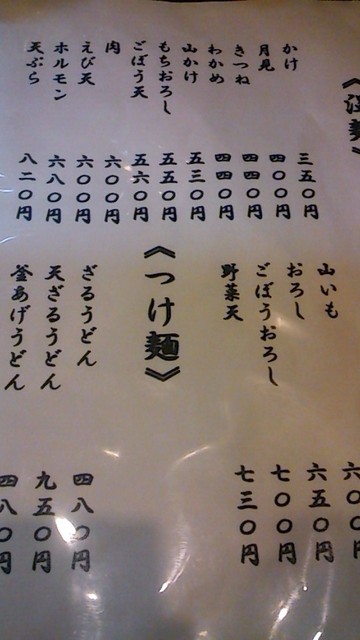 かけ 三五〇円
月見 四〇〇円
きつね 四四〇円
わかめ 四四〇円
山かけ 五三〇円
もちおろし 五五〇円
ごぼう天 五六〇円
肉 六〇〇円
えび天 六〇〇円
ホルモン 六八〇円
天ぷら 八二〇円
山いも 六〇〇円
おろし 六五〇円
ごぼうおろし 七〇〇円
野菜天 七三〇円
《つけ麺》
ざるうどん 四八〇円
天ざるうどん 九五〇円
釜あげうどん 四八〇円